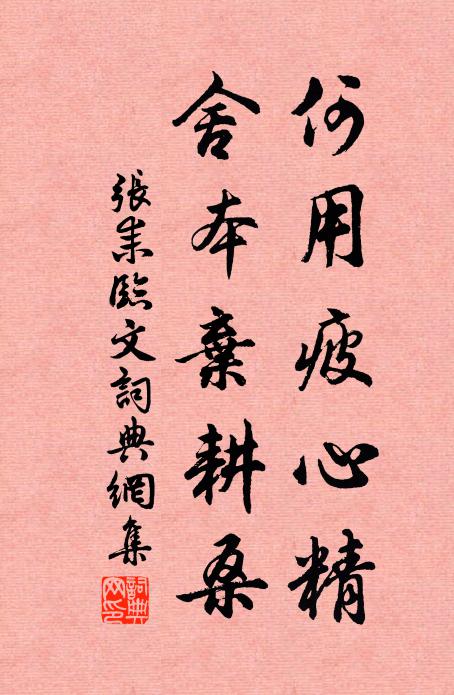 何用疲心精
舍本棄耕桑
張業臨文詞典網集
詞典網印